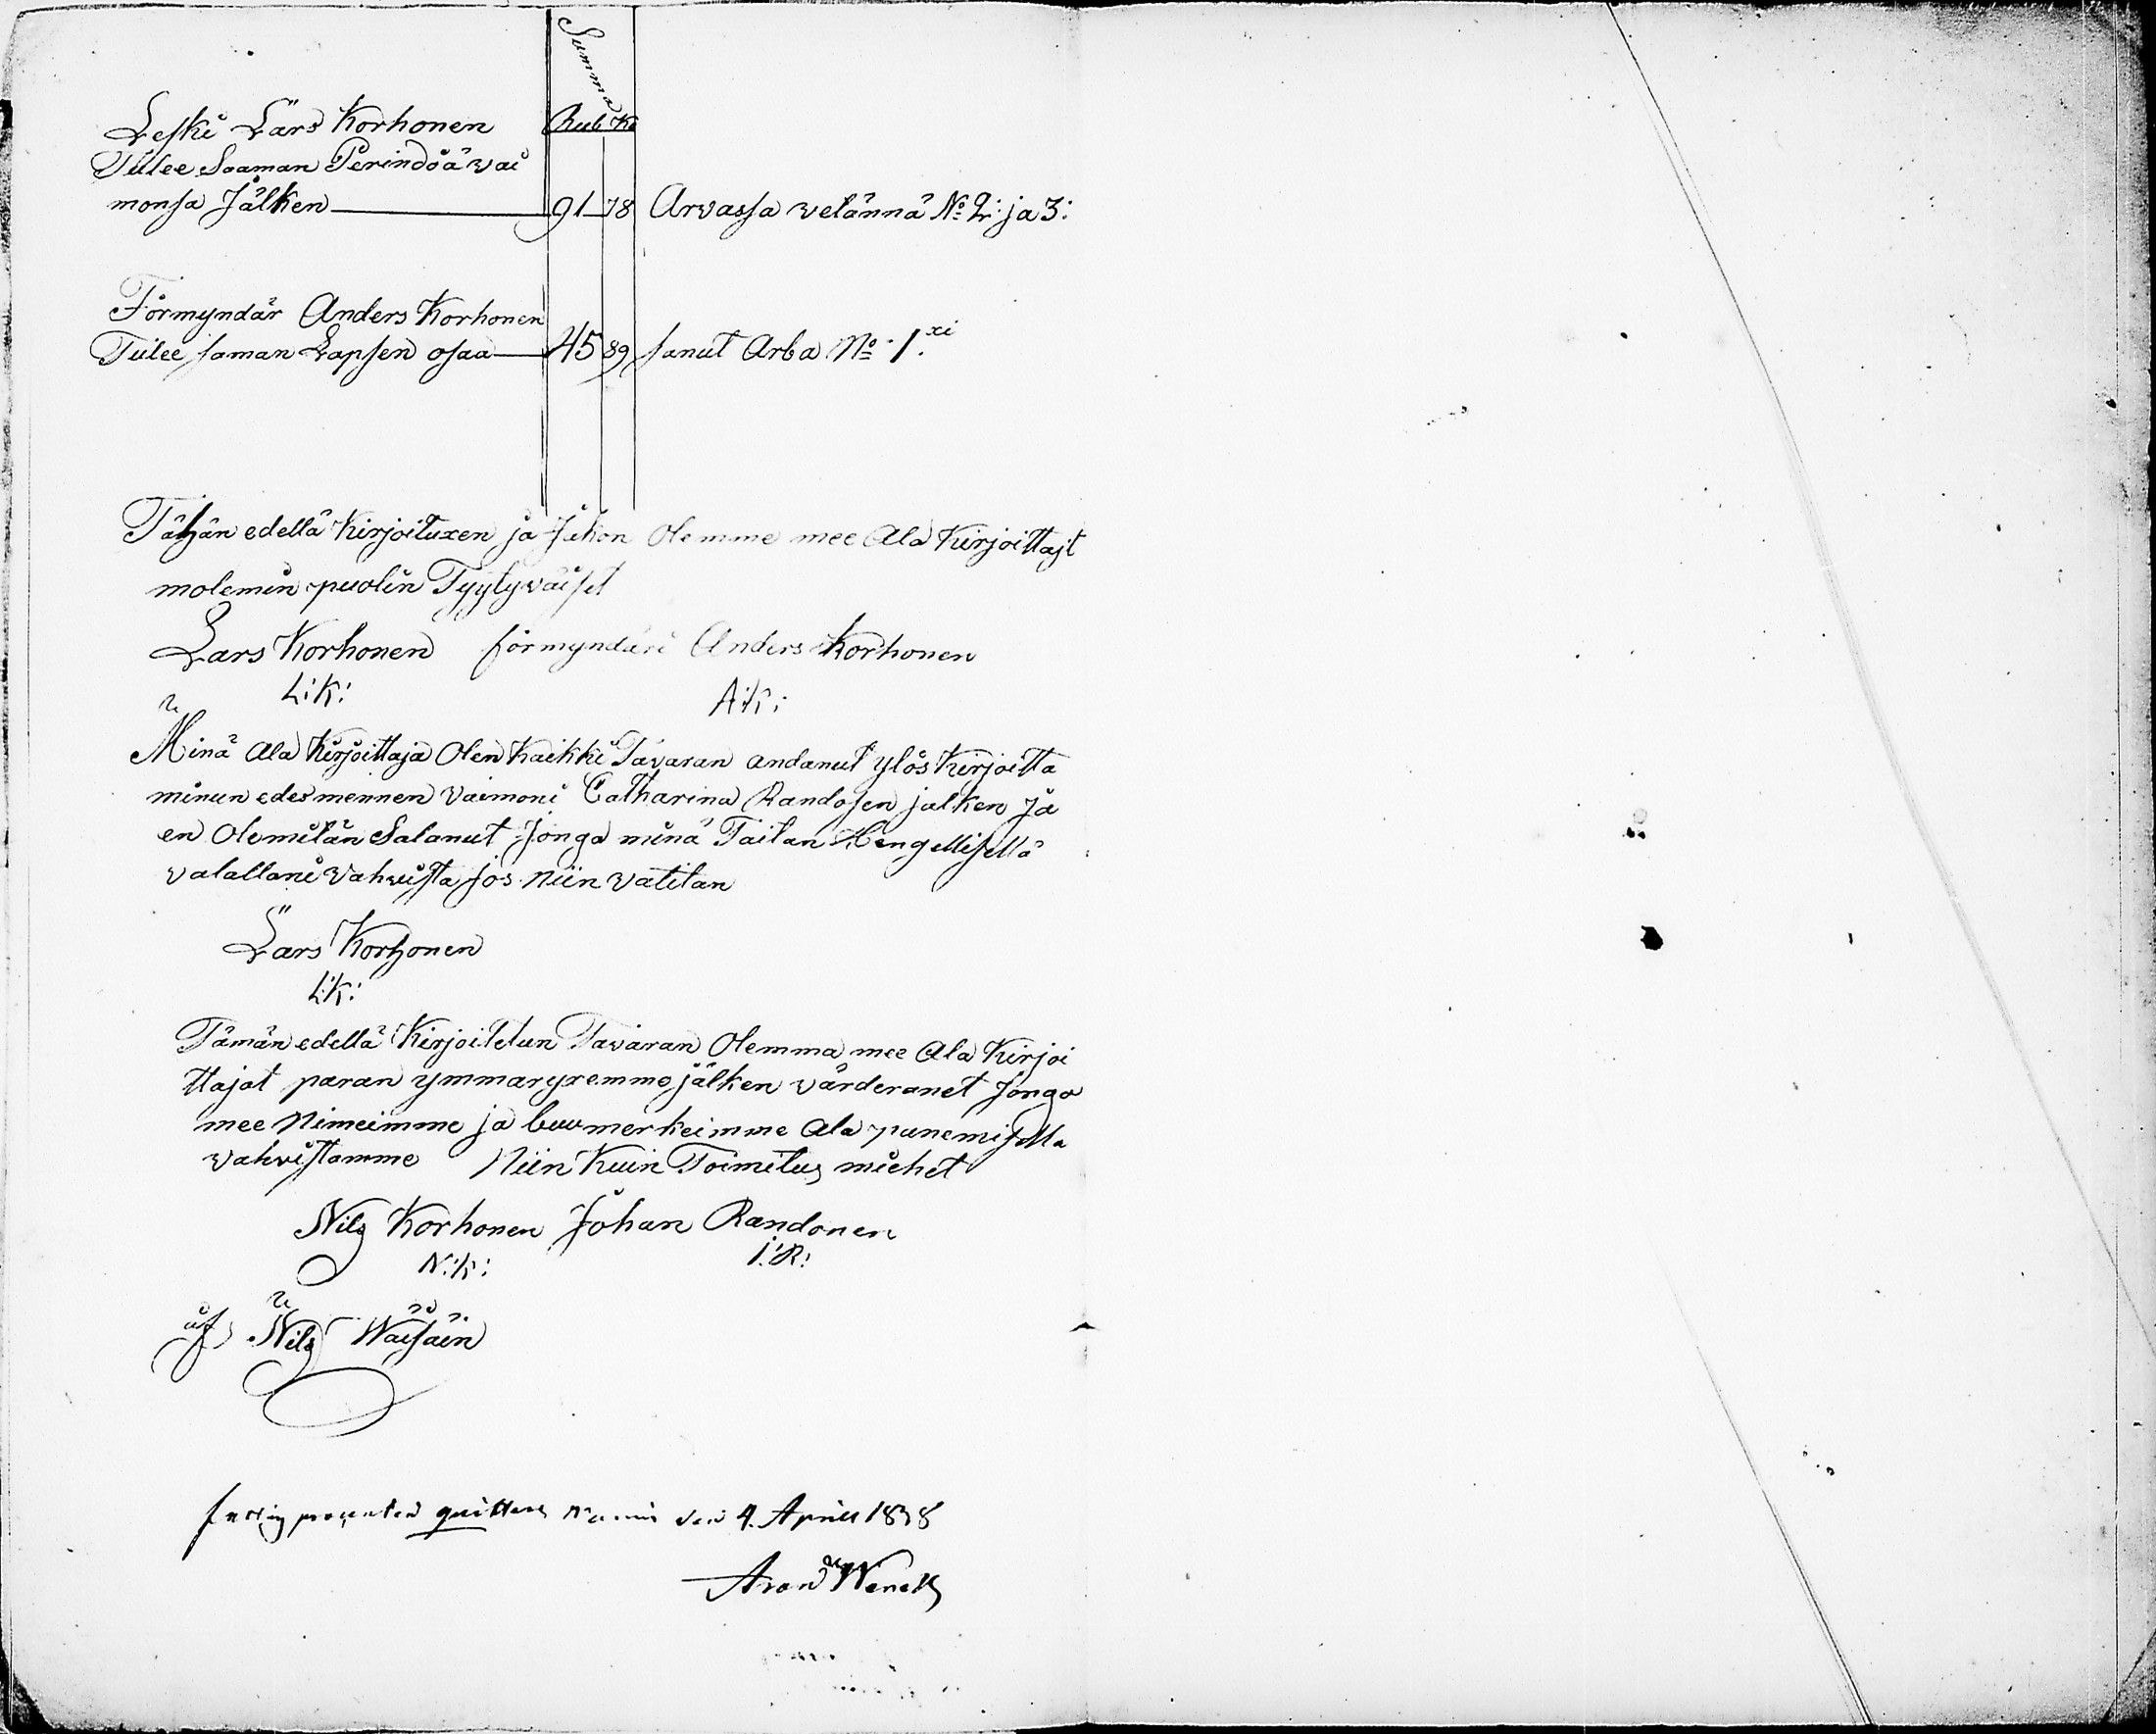 Summa
Leski Lars Korhonen Rub Ko
Tulee Saaman Perindöä vai
monsa Jälken 91 78 Arvassa velännä No 2: ja 3:
Förmyndär Anders Korhonen
Tulee saman Lapsen osaa 45 89 sanut Arba No 1.xi
Tähän edellä Kirjoituxen ja Jakon Olemme mee Ala Kirjoittajt
molemin puolin Tyytyväiset
Lars Korhonen förmyndäri Anders Korhonen
L:K: A:K:
Minä Ala Kirjoittaja Olen Kaikki Tavaran andanut ylös Kirjoitta
minun edesmennen Vaimoni Catharina Randosen jalken Ja
en Ole mitän Salanut Jonga minä Taitan Hengellisellä
valallani Vahvista Jos Niin Vatitan
Lars Korhonen
L:K:
Tämän edellä Kirjoitetun Tavaran Olemma mee Ala Kirjoi
ttajat paran ymmaryxemme jälken värderanet Jonga
mee Nimeimme ja buumerkeimme Ala panemisella
vahvistamme Niin Kuin Toimitus miehet
Nils Korhonen Johan Randonen
N:K: J:R:
af Nils Waisäin
procenten quitteras den 4. April 1838
Aron Wenell